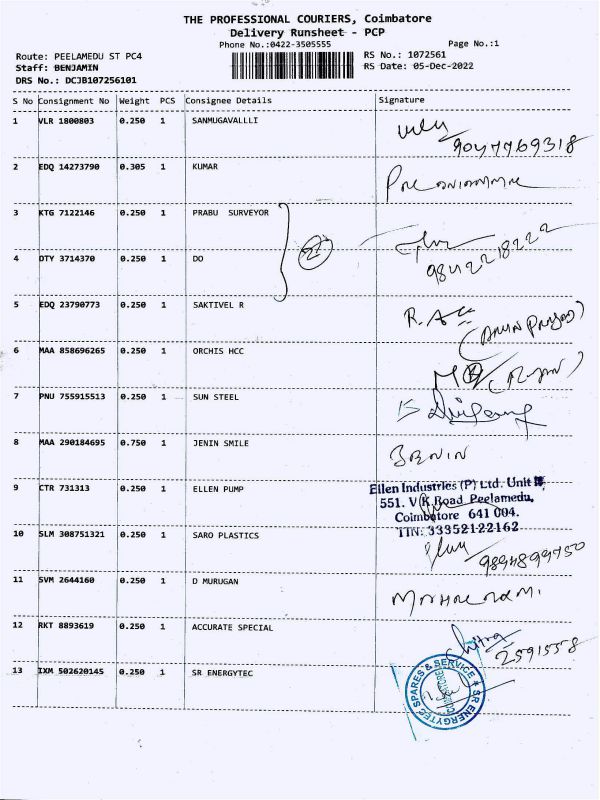 THE PROFESSIONAL COURIERS, Coimbatore
Delivery Runsheet - PCP
Phone No.:0422-3505555
Page No.:1
Route: PEELAMEDU ST PC4
RS No.: 1072561
Staff: BENJAMIN
RS Date: 05-Dec-2022
DRS No.: DCJB107256101
S No Consignment No Weight PCS Consignee Details Signature
1 VLR 1800803 0.250 1 SANMUGAVALLLI
9047769318
2 EDQ 14273790 0.305 1 KUMAR
3 KTG 7122146 0.250 1 PRABU SURVEYOR
27
9842218222
4 DTY 3714370 0.250 1 DO
5 EDQ 23790773 0.250 1 SAKTIVEL R
(ARUN PRASAD)
6 MAA 858696265 0.250 1 ORCHIS HCC
7 PNU 755915513 0.250 1 SUN STEEL
8 MAA 290184695 0.750 1 JENIN SMILE
JENIN
9 CTR 731313 0.250 1 ELLEN PUMP
Ellen Industries (P) Ltd. Unit
551, V.K. Road Peelamedu,
Coimbatore 641 004.
TIN: 33352122162
10 SLM 308751321 0.250 1 SARO PLASTICS
9894899750
11 SVM 2644160 0.250 1 D MURUGAN
12 RKT 8893619 0.250 1 ACCURATE SPECIAL
Chitra
2591558
13 IXM 502620145 0.250 1 SR ENERGYTEC
SR ENERGYTEC SPARES & SERVICE
COIMBATORE